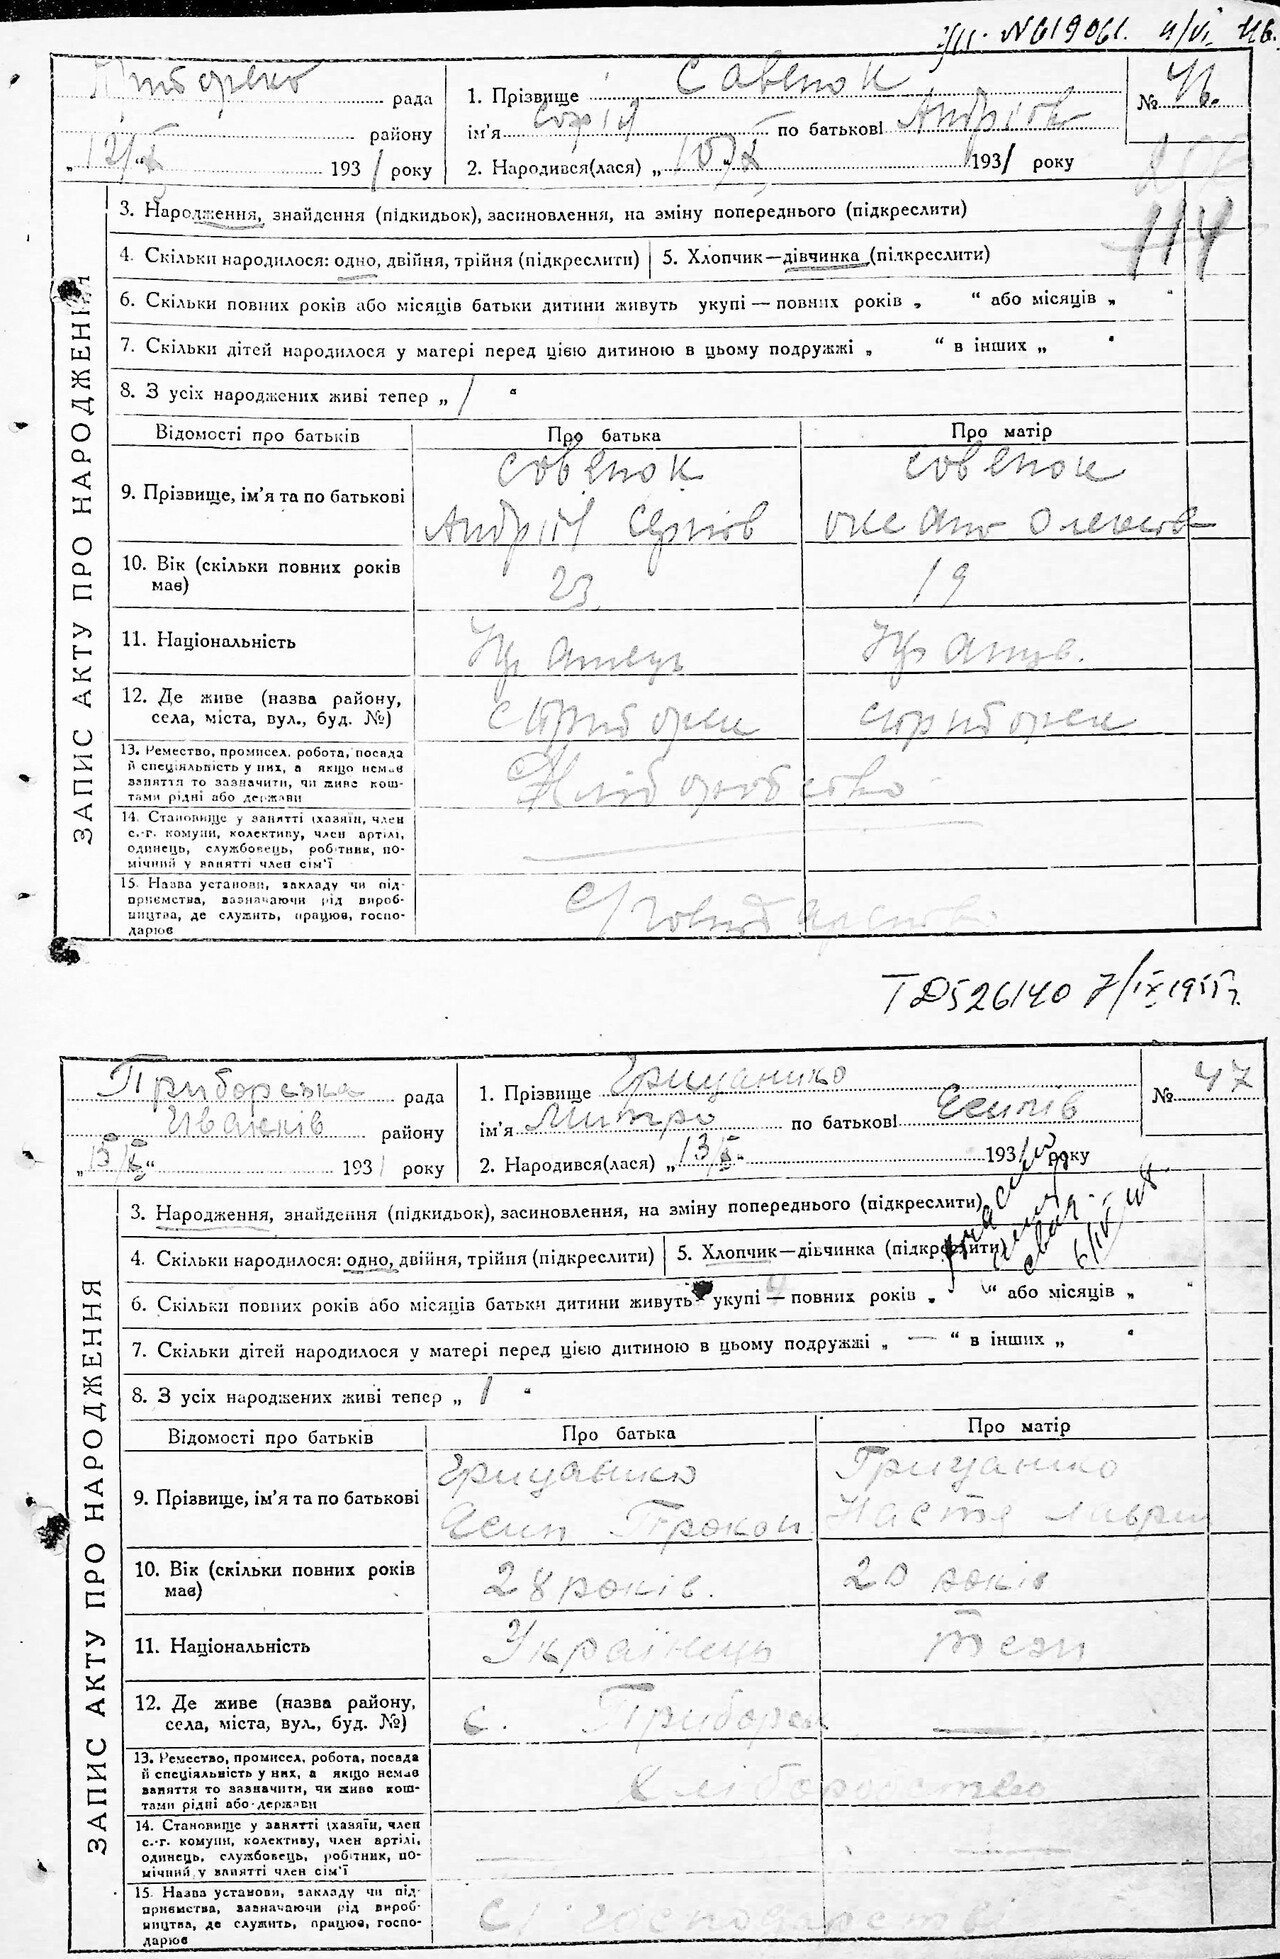 № 46.
рада
1. Прізвище Савенок
району
ім'я Софія по батькові Андріов
„12/X“ 1931 року
2. Народився(лася) „10/X 1931 року
114
ЗАПИС АКТУ ПРО НАРОДЖЕННЯ
3. Народження, знайдення (підкидьок), засиновлення, на зміну попереднього (підкреслити)
4. Скільки народилося: одно, двійня, трійня (підкреслити)
5. Хлопчик—дівчинка (підкреслити)
6. Скільки повних років або місяців батьки дитини живуть укупі — повних років „ “ або місяців „ “
7. Скільки дітей народилося у матері перед цією дитиною в цьому подружжі „ “ в інших „ “
8. З усіх народжених живі тепер „ / “
Відомості про батьків
Про батька
Про матір
9. Прізвище, ім'я та по батькові
Совенок
Андрій
Совенок
10. Вік (скільки повних років
має)
23
19
11. Національність
12. Де живе (назва району,
села, міста, вул., буд. №)
13. Ремество, промисел, робота, посада
й спеціяльність у них, а якщо немає
заняття то зазначити, чи живе кош-
тами рідні або держави
Хліборобство
14. Становище у занятті (хазяїн, член
с.-г. комуни, колективу, член артілі,
одинець, службовець, робітник, по-
мічний у занятті член сім'ї
15. Назва установи, закладу чи під-
приємства, зазначаючи рід вироб-
ництва, де служить, працює, госпо-
дарює
ТД526140 7/IX 1955г.
Приборська рада
1. Прізвище Грицанико
№ 47
Іванків району
ім'я Митро по батькові Есипів
„15/X“ 1931 року
2. Народився(лася) „13/X 1931 року
ЗАПИС АКТУ ПРО НАРОДЖЕННЯ
3. Народження, знайдення (підкидьок), засиновлення, на зміну попереднього (підкреслити)
4. Скільки народилося: одно, двійня, трійня (підкреслити)
5. Хлопчик—дівчинка (підкреслити)
6. Скільки повних років або місяців батьки дитини живуть укупі — повних років „ “ або місяців „ “
7. Скільки дітей народилося у матері перед цією дитиною в цьому подружжі „ — “ в інших „ “
8. З усіх народжених живі тепер „ 1 “
Відомості про батьків
Про батька
Про матір
9. Прізвище, ім'я та по батькові
Грицанико
Есип Прокоп
Грицанико
Настя Лаври
10. Вік (скільки повних років
має)
28 років.
20 років
11. Національність
Українець
теж
12. Де живе (назва району,
села, міста, вул., буд. №)
с. Приборськ
13. Ремество, промисел, робота, посада
й спеціяльність у них, а якщо немає
заняття то зазначити, чи живе кош-
тами рідні або держави
Хліборобство
14. Становище у занятті (хазяїн, член
с.-г. комуни, колективу, член артілі,
одинець, службовець, робітник, по-
мічний у занятті член сім'ї
15. Назва установи, закладу чи під-
приємства, зазначаючи рід вироб-
ництва, де служить, працює, госпо-
дарює
с/господарстві